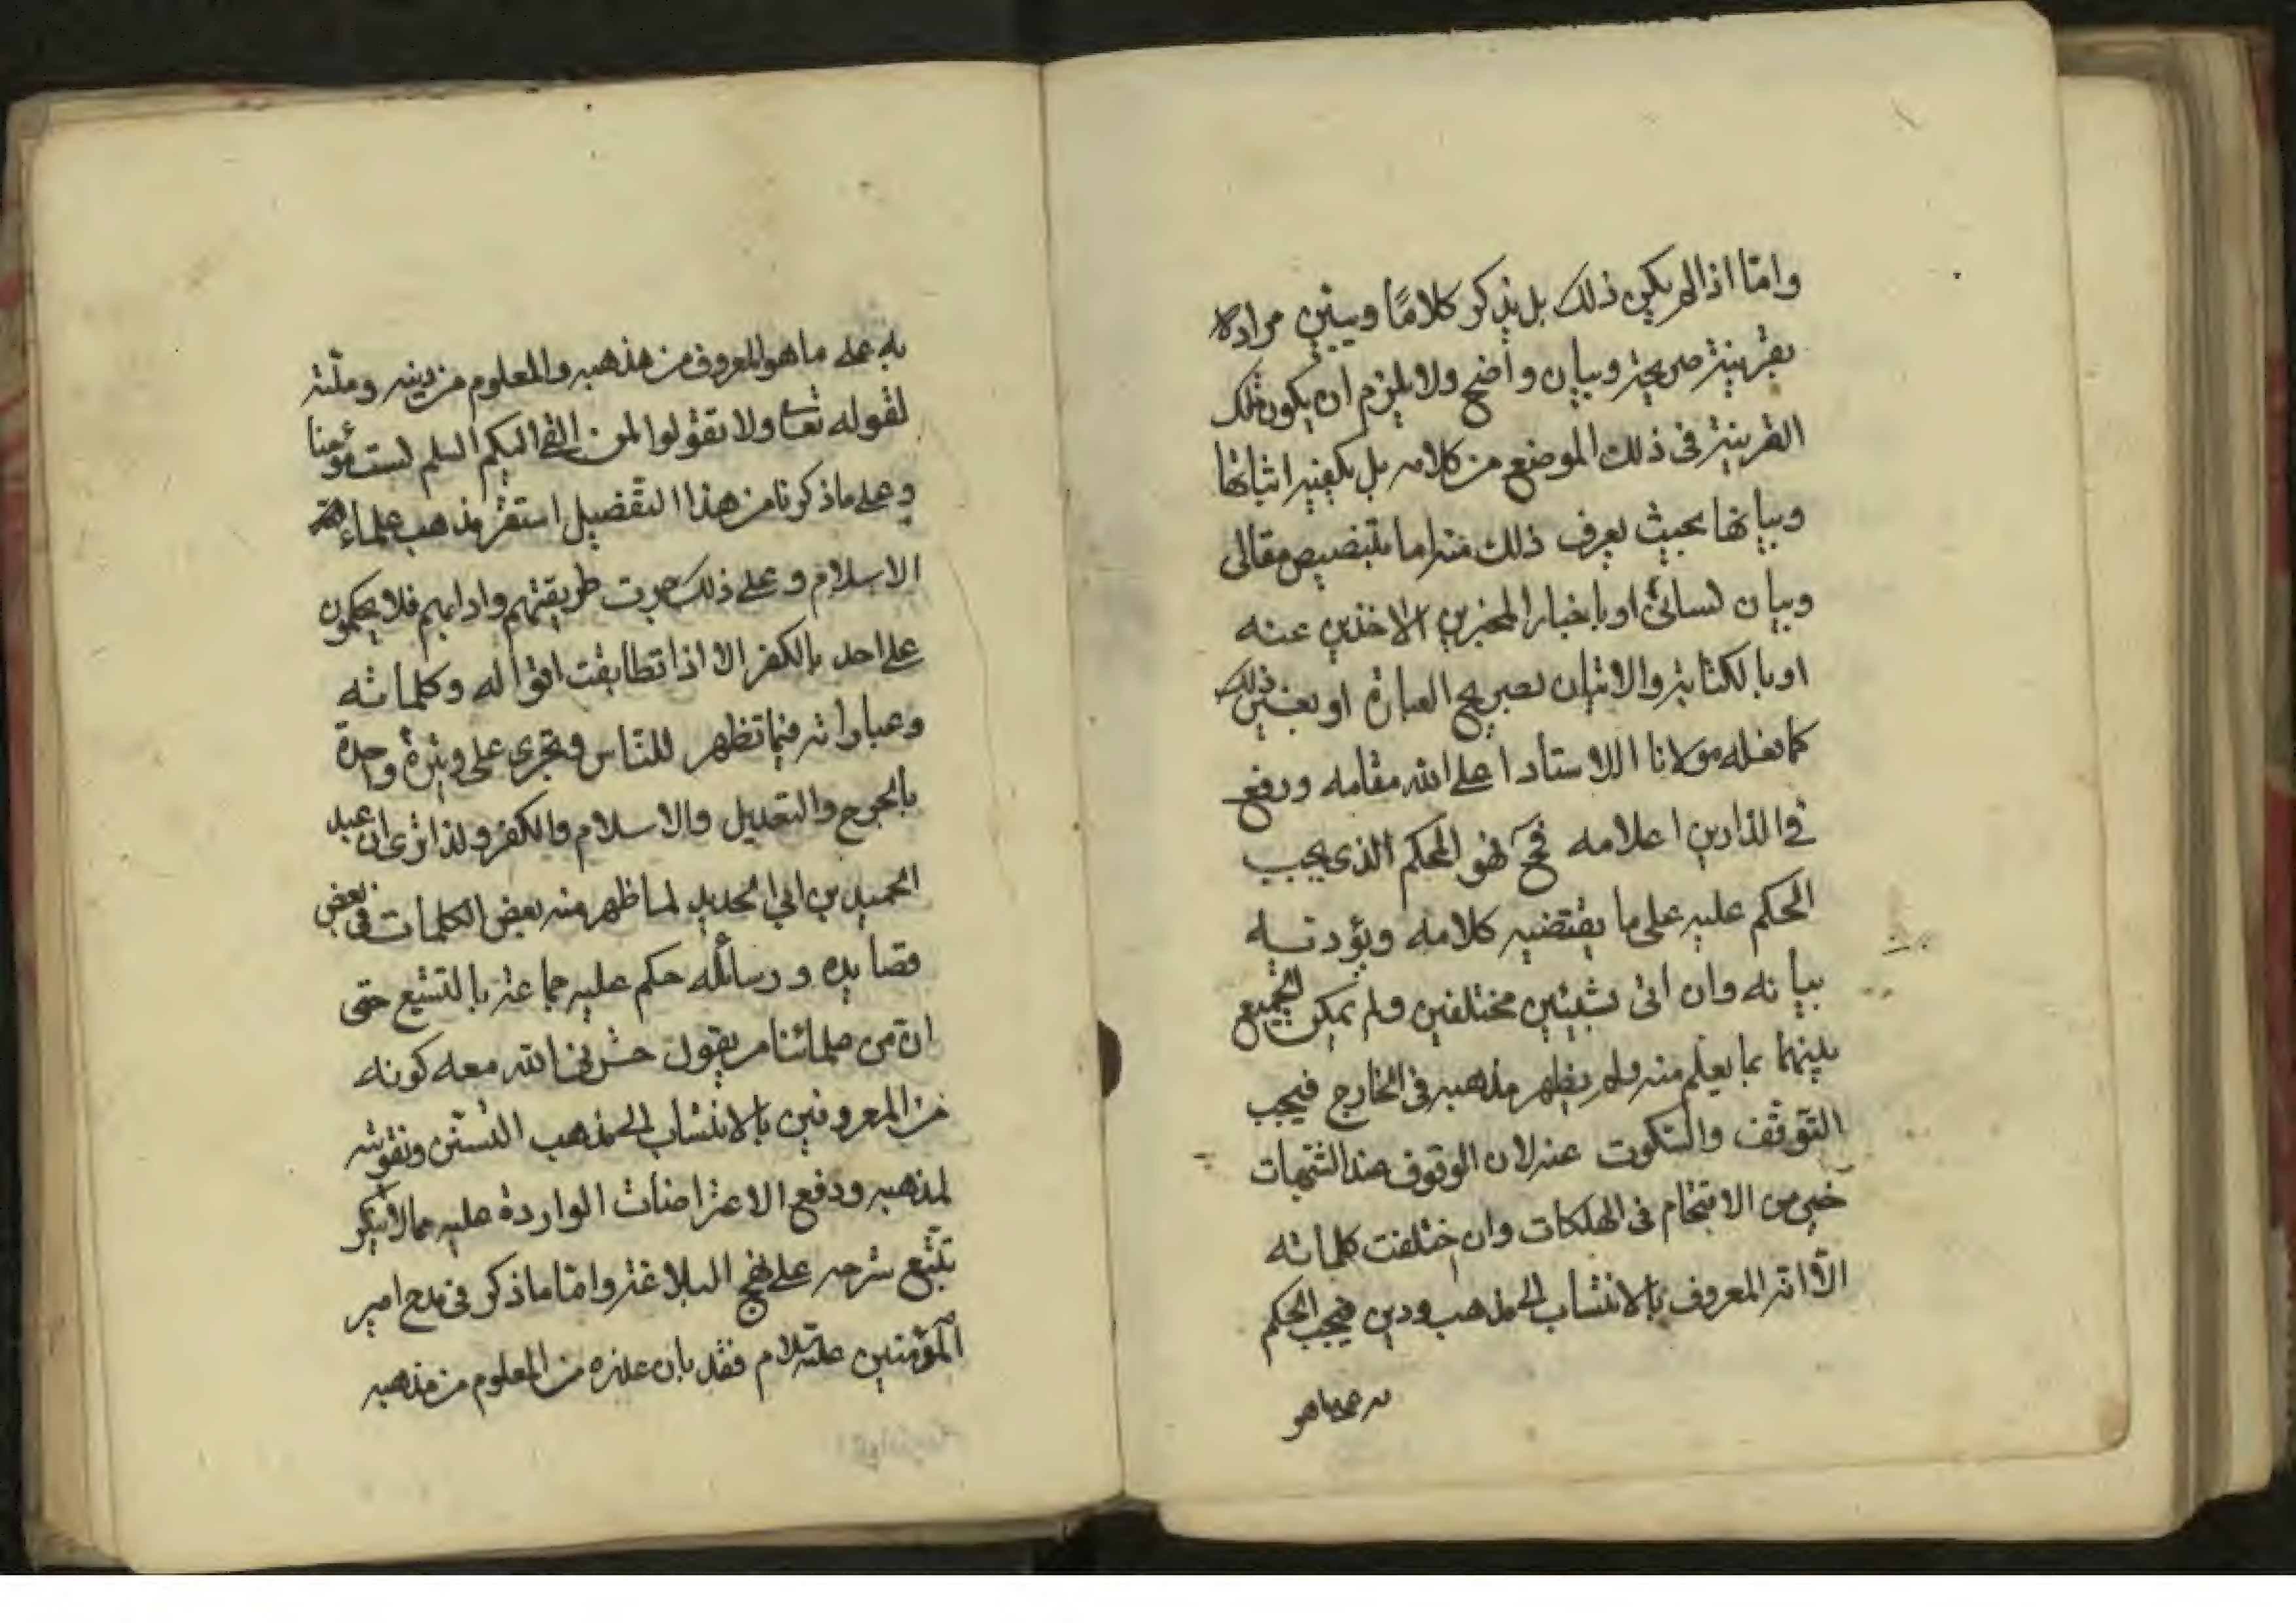 واما اذا لم يكن ذلك بل يذكر كلامًا ويبين مراده
بقرينة صريحة وبيان واضح ولا يلزم ان يكون تلك
القرينة فى ذلك الموضع من كلامه بل يكفيه اثباتها
وبيانها بحيث يعرف ذلك منه اما بتنصيص مقالى
وبيان لسانى او باخبار المخبرين الاخذين عنه
او بالكتابة والاتيان بصريح العبارة او بغير ذلك
كما فعله مولانا الاستاد اعلى الله مقامه ورفع
فى الدارين اعلامه فح فهو المحكم الذى يجب
الحكم عليه على ما يقتضيه كلامه ويؤدیه
بيانه وان اتى بشيئين مختلفين ولم يمكن الجميع
بينهما بما يعلم منه ولم يظهر مذهبه فى الخارج فيجب
التوقف والسكوت عنه لان الوقوف عند الشبهات
خير من الاقتحام فى الهلكات وان اختلفت كلماته
الا انه المعروف بالانتساب الى مذهب ودين فيجب الحكم
به على ما هو
به على ما هو المعروف من مذهبه والمعلوم من دينه وملته
لقوله تعا ولا تقولوا لمن القى اليكم السلم لست مؤمنا
وعلى ما ذكرنا من هذا التفضيل استقر مذهب علماء
الاسلام وعلى ذلك جرت طريقتهم وادابهم فلا يحكمون
على احد بالكفر الا اذا تطابقت اقواله وكلماته
وعباراته فيما تظهر للناس وتجرى على وتيرة واحدة
بالجرح والتعديل والاسلام والكفر ولذا ترى ان عبد
الحميد بن ابي الحديد لما ظهر منه بعض الكلمات فى بعض
قصايده ورسائله حكم عليه جماعة بالتشيع حتى
ان من علمائنا من يقول حشرنى الله معه كونه
من المعروفين بالانتساب الى مذهب التسنن وتقويته
لمذهبه ودفع الاعتراضات الواردة عليه مما لا ينكر
تتبع شرحه على نهج البلاغة واما ما ذكر فى مدح امير
المؤمنين عليه السلام فقد بان عذره من المعلوم من مذهبه